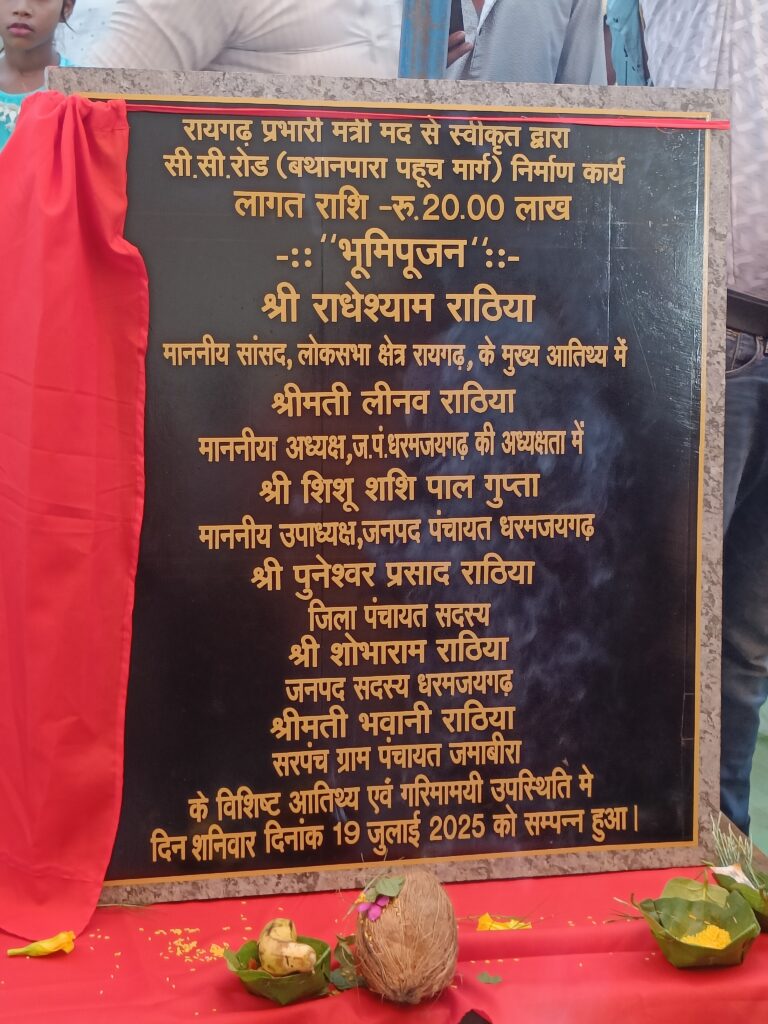 रायगढ़ प्रभारी मंत्री मद से स्वीकृत द्वारा
सी.सी.रोड (बथानपारा पहूच मार्ग) निर्माण कार्य
लागत राशि -रू.20.00 लाख
-:: "भूमिपूजन"::-
श्री राधेश्याम राठिया
माननीय सांसद, लोकसभा क्षेत्र रायगढ़, के मुख्य आतिथ्य में
श्रीमती लीनव राठिया
माननीया अध्यक्ष,ज.पं.धरमजयगढ़ की अध्यक्षता में
श्री शिशू शशि पाल गुप्ता
माननीय उपाध्यक्ष,जनपद पंचायत धरमजयगढ़
श्री पुनेश्वर प्रसाद राठिया
जिला पंचायत सदस्य
श्री शोभाराम राठिया
जनपद सदस्य धरमजयगढ़
श्रीमती भवानी राठिया
सरपंच ग्राम पंचायत जमाबीरा
के विशिष्ट आतिथ्य एवं गरिमामयी उपस्थिति मे
दिन शनिवार दिनांक 19 जुलाई 2025 को सम्पन्न हुआ।